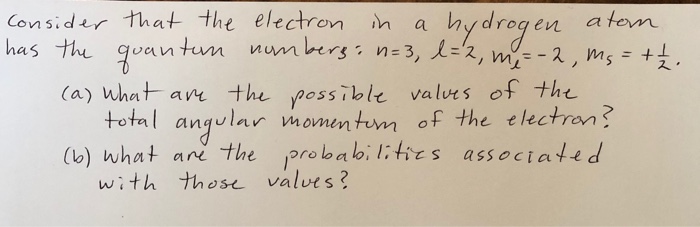 Consider that the electron in a hydrogen atom
has the quantum numbers: n=3, l=2, m_l=-2, m_s = +1/2.
(a) What are the possible values of the
total angular momentum of the electron?
(b) What are the probabilities associated
with those values?